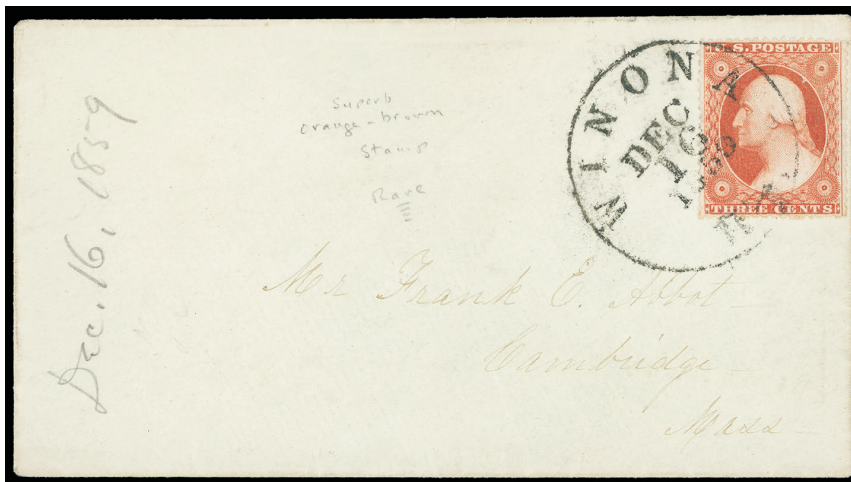 Dec. 16, 1859
Superb
orange-brown
stamp
Rare
WINONA
DEC
16
U.S. POSTAGE
THREE CENTS
Mr Frank E. Abbot
Cambridge
Mass